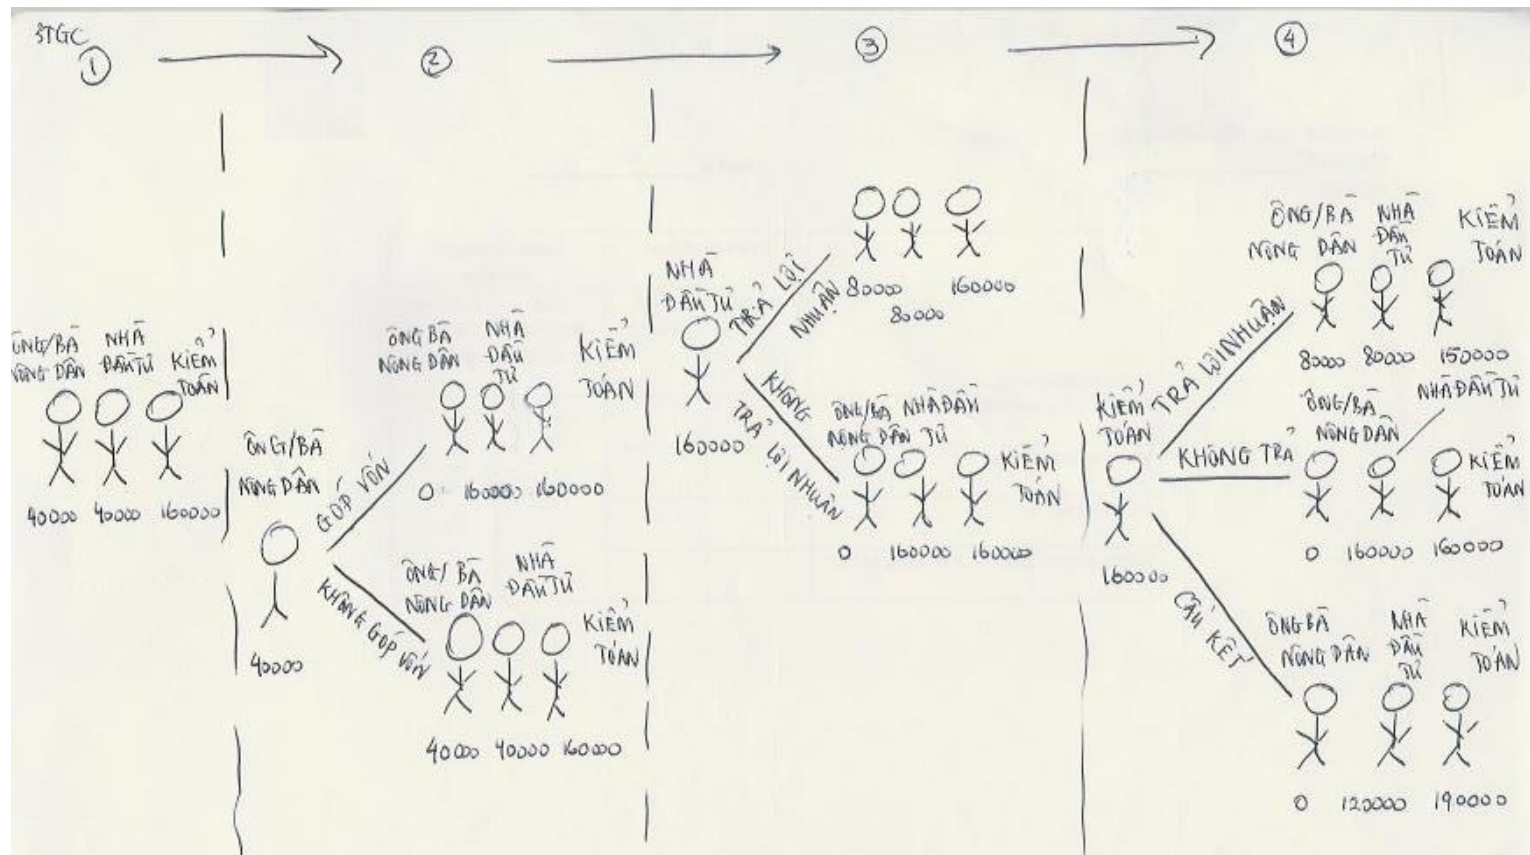 3TGC
①
②
③
④
ÔNG/BÀ
NÔNG DÂN
NHÀ
ĐẦU TƯ
KIỂM
TOÁN
40000 40000 160000
ÔNG/BÀ
NÔNG DÂN
40000
GÓP VỐN
KHÔNG GÓP VỐN
ÔNG BÀ
NÔNG DÂN
NHÀ
ĐẦU
TƯ
KIỂM
TOÁN
0 160000 160000
ÔNG/BÀ
NÔNG DÂN
NHÀ
ĐẦU TƯ
KIỂM
TOÁN
40000 40000 160000
NHÀ
ĐẦU TƯ
160000
TRẢ LỢI
NHUẬN
KHÔNG
TRẢ LỢI NHUẬN
80000
80000
160000
ÔNG/BÀ
NÔNG DÂN
NHÀ ĐẦU
TƯ
KIỂM
TOÁN
0 160000 160000
KIỂM
TOÁN
160000
TRẢ LỢI NHUẬN
KHÔNG TRẢ
CẤU KẾT
ÔNG/BÀ
NÔNG DÂN
NHÀ
ĐẦU
TƯ
KIỂM
TOÁN
80000 80000 150000
ÔNG/BÀ
NÔNG DÂN
NHÀ ĐẦU TƯ
KIỂM
TOÁN
0 160000 160000
ÔNG BÀ
NÔNG DÂN
NHÀ
ĐẦU
TƯ
KIỂM
TOÁN
0 120000 190000